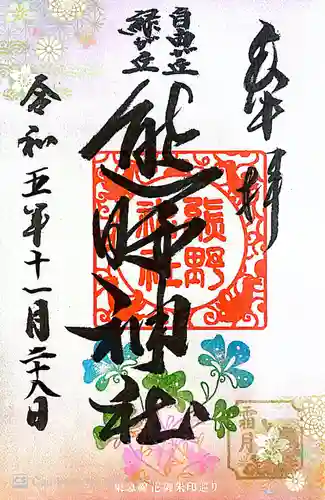 奉拝
自由が丘
緑が丘
熊野神社
熊野
神社
令和五年十一月二十八日
霜月
東急線花御朱印巡り